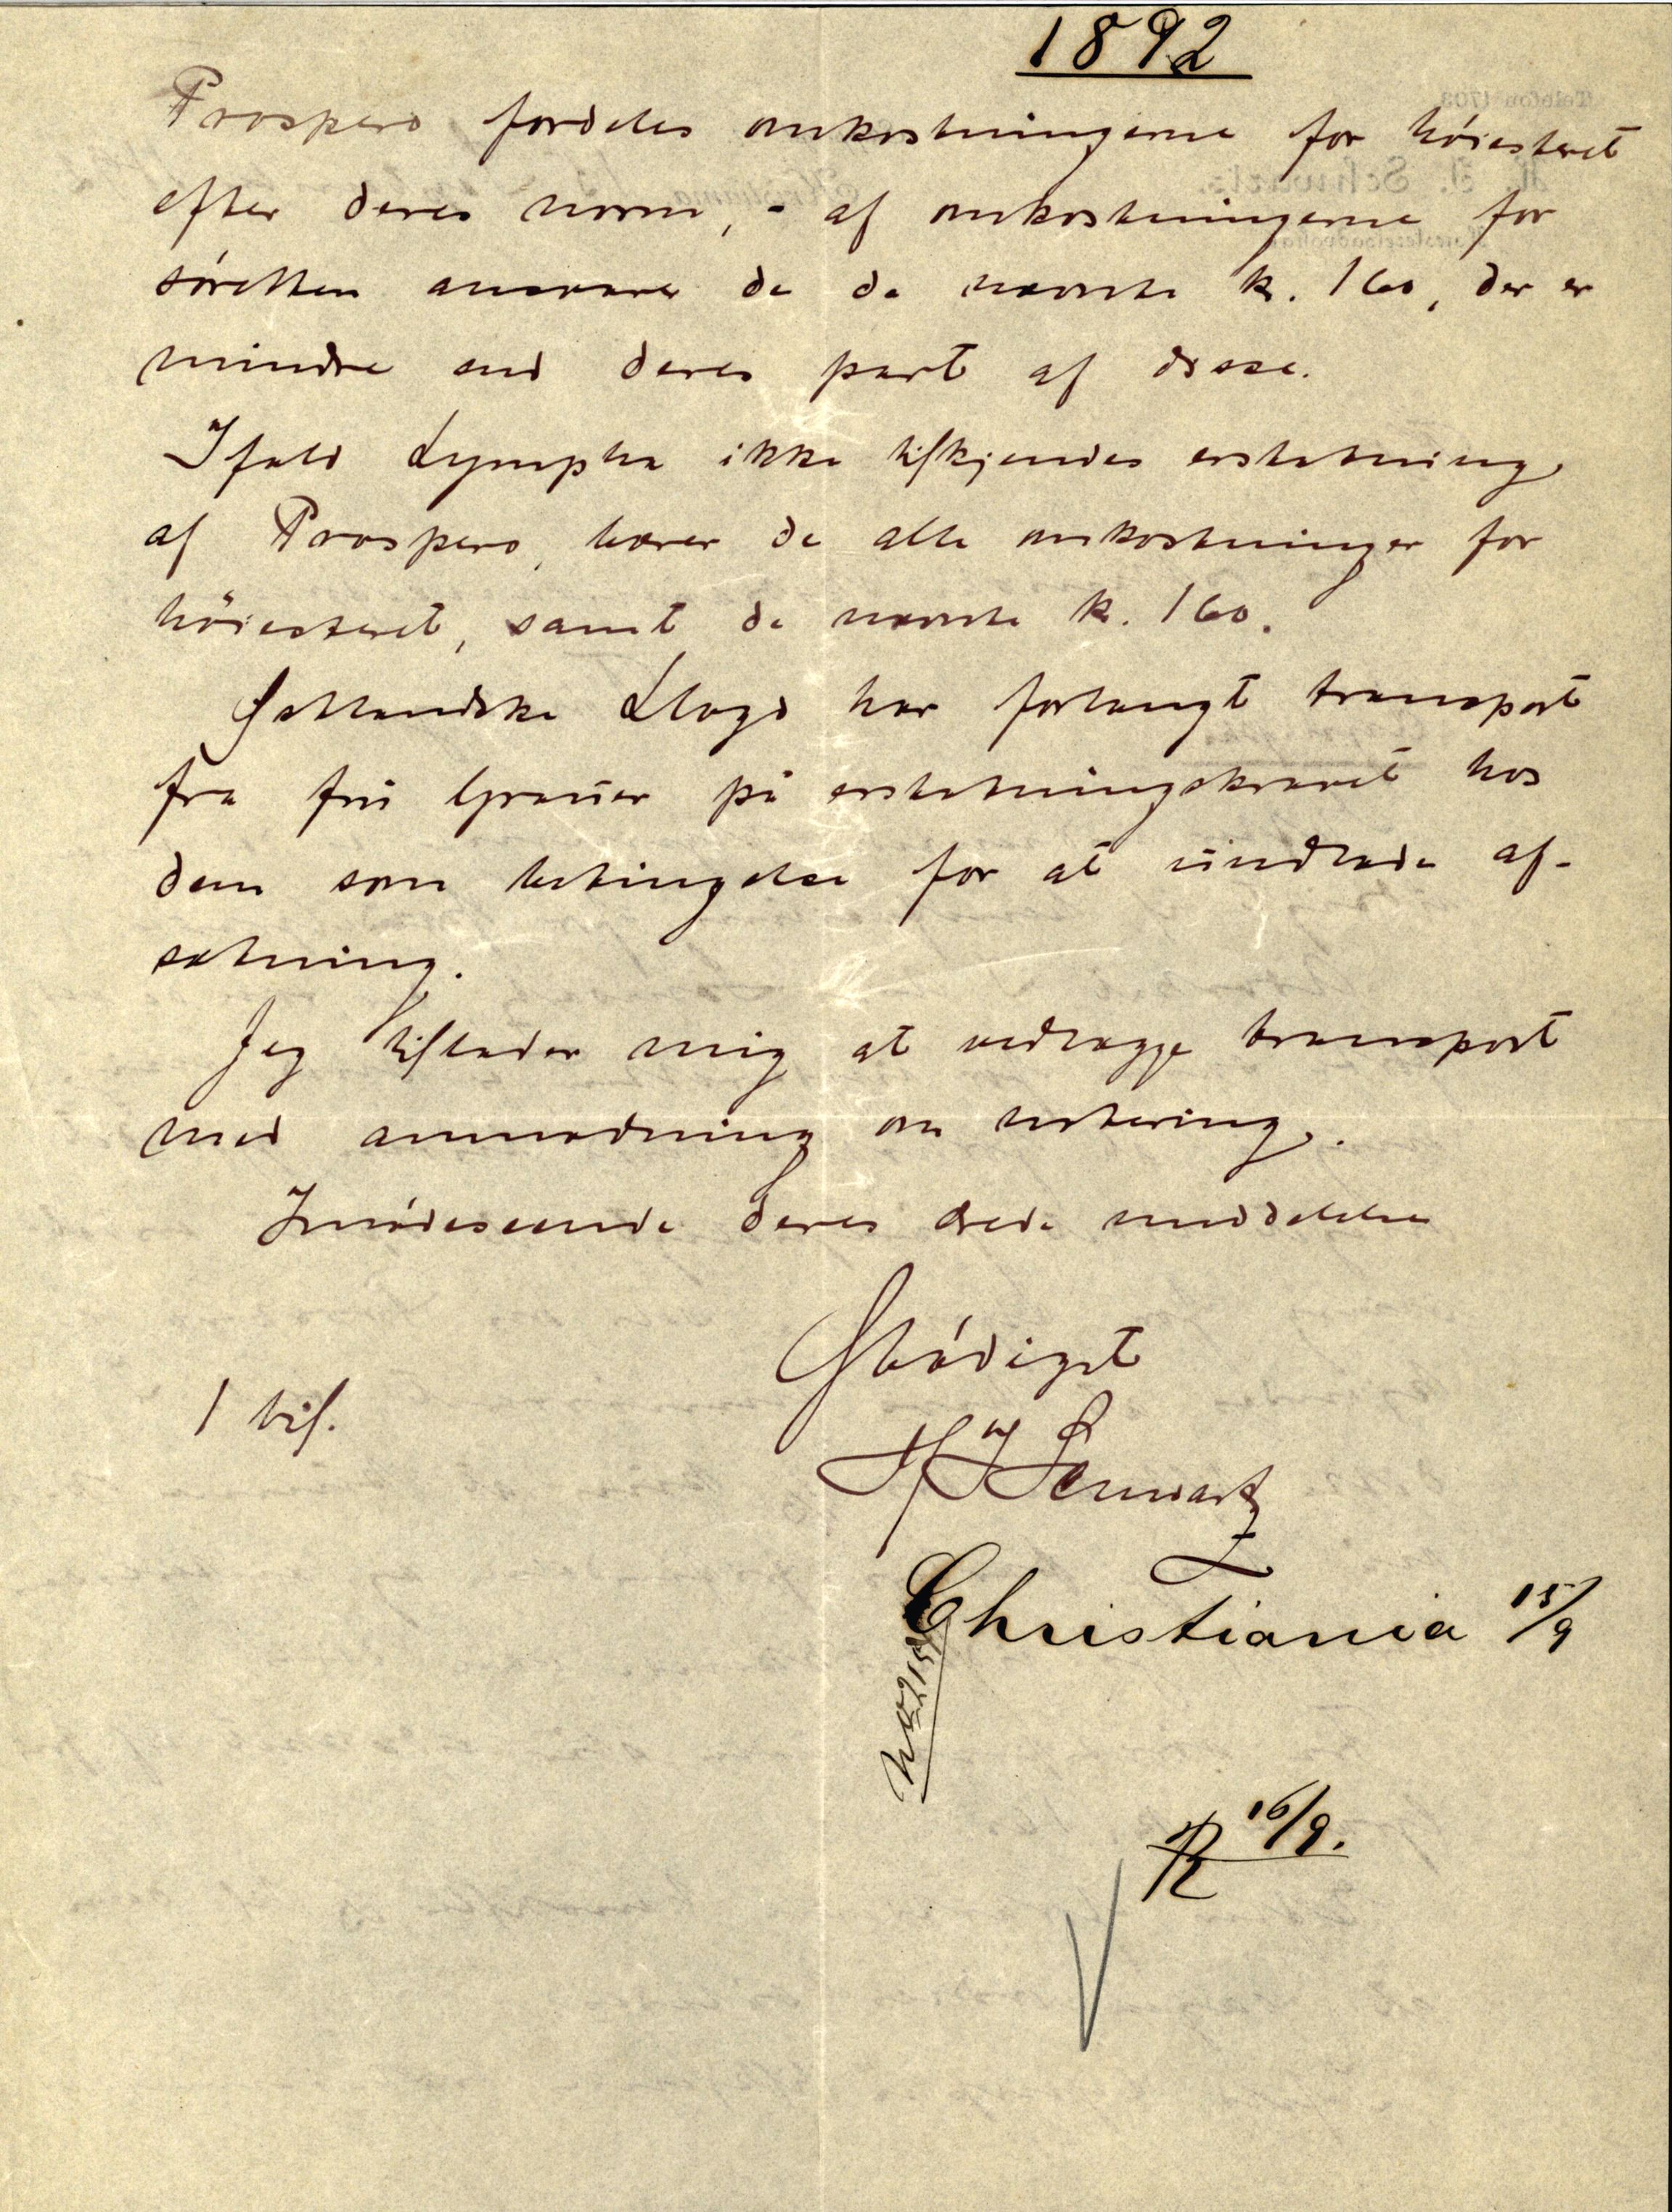 1892
Prospero fordeles omkostningerne for höiesteret
efter deres norm, - af omkostningerne for
söretten ansvarer de de nævnte k. 160, der er
mindre end deres part af disse.
Ifald Lympha ikke tilkjendes erstatning
af Prospero, bærer de alle omkostninger for
höiesteret, samt de nævnte k. 160.
Hollandske Lloyd har forlangt transport
fra frü Graüer på erstatningskravet hos
dem som betingelse for at üindlade af-
sætning.
Jeg tillader mig at vedlægge transport
med anmodning om notering.
Imödeseende deres ærede meddelelse
Ærbödigst
1 bil.
H J Schwartz
Christiania 15/9
R 16/9.